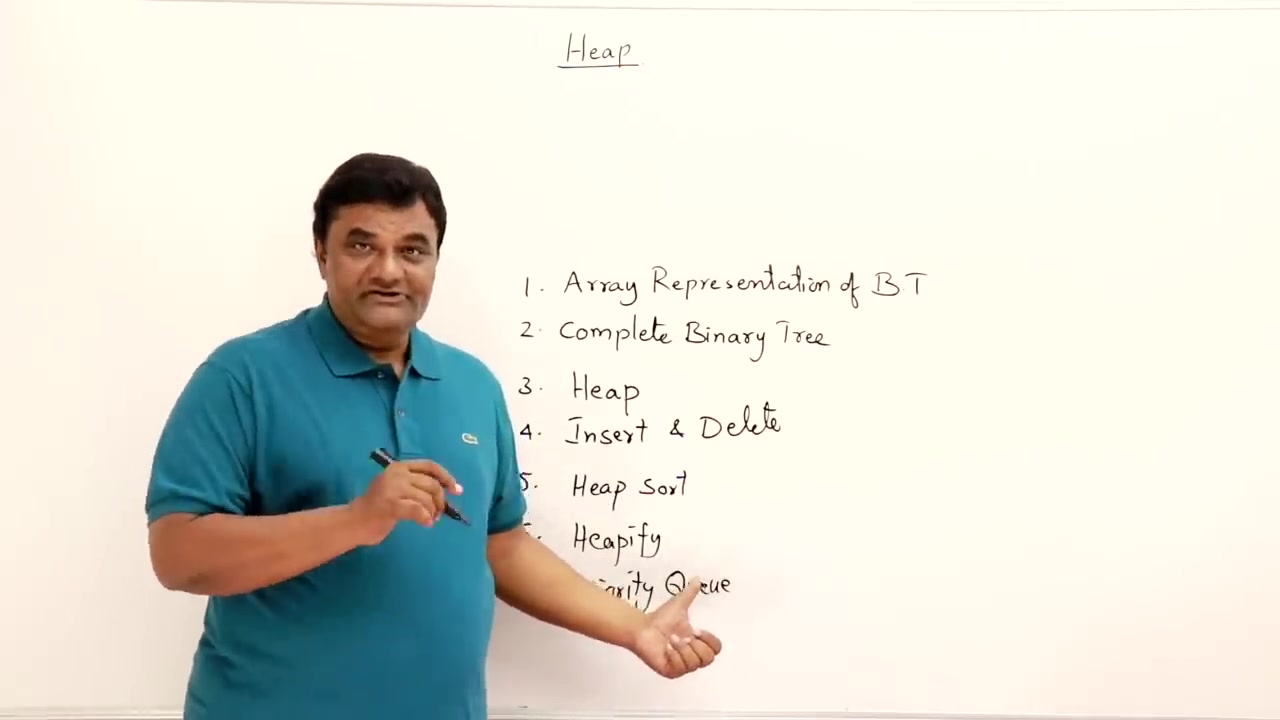 Heap
1. Array Representation of B.T
2. Complete Binary Tree
3. Heap
4. Insert & Delete
5. Heap Sort
Heapify